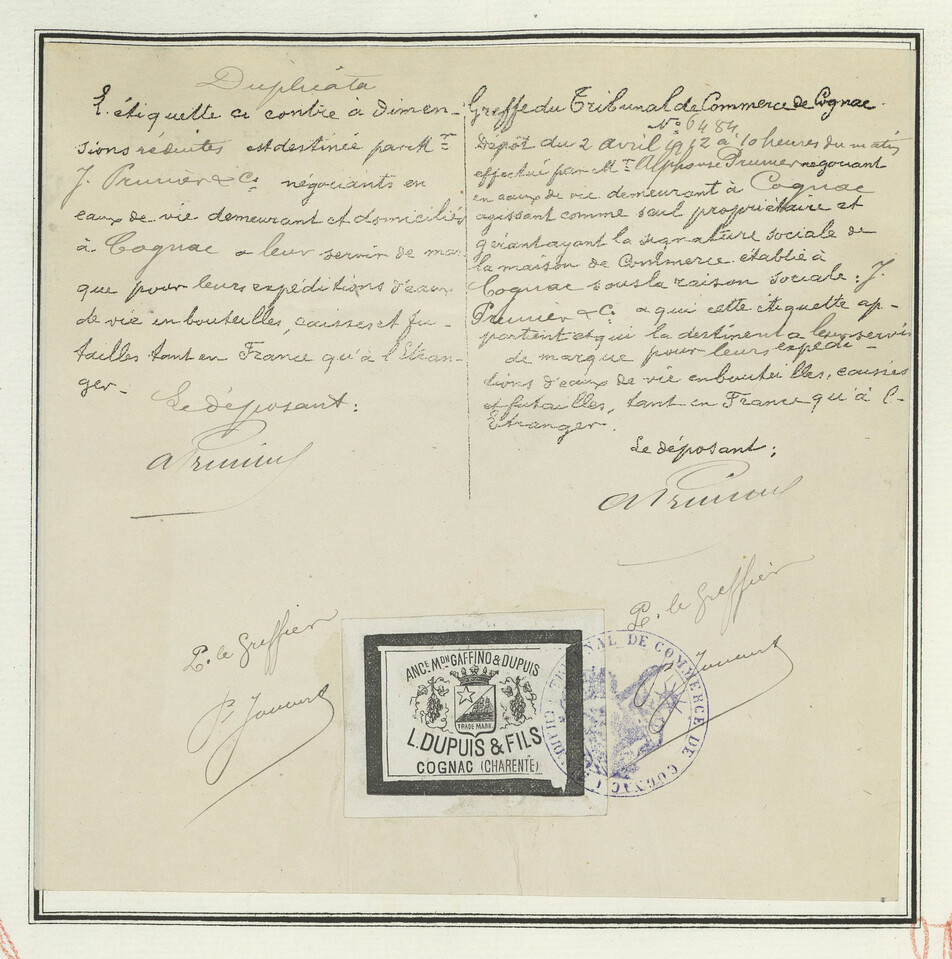 Duplicata
L'étiquette ci contre à dimen-
sions réduites est destinée par Mrs
J. Prunier & Cie négociants en
eaux de vie demeurant et domiciliés
à Cognac a leur servir de mar
que pour leurs expéditions d'eaux
de vie en bouteilles, caisses et fu-
tailles tant en France qu'à l'Etran-
ger.
Le déposant:
A Prunier
Greffe du Tribunal de Commerce de Cognac.
No 6484
Dépôt du 2 avril 1912 à 10 heures du matin
effectué par Mr Alphonse Prunier négociant
en eaux de vie demeurant à Cognac
agissant comme seul propriétaire et
gérant ayant la signature sociale de
la maison de Commerce établie à
Cognac sous la raison sociale: J.
Prunier & Cie a qui cette étiquette ap-
partient et qui la destinent a leur servir
de marque pour leurs expédi-
tions d'eaux de vie en bouteilles, caisses
et futailles, tant en France qu'à l'-
Etranger.
Le déposant;
A Prunier
P. le Greffier
P. le Greffier
ANCE MON GAFFINO & DUPUIS
TRADE MARK
L. DUPUIS & FILS
COGNAC (CHARENTE)
TRIBUNAL DE COMMERCE DE COGNAC